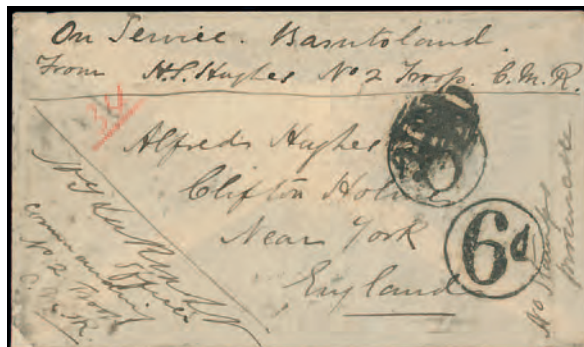 On Service. Basutoland.
From H.S. Hughes No 2 Troop. C.M.R.
Alfred Hughes
Clifton Holme
Near York
England
Officer
commanding
No 2 Troop
C.M.R.
6d
No Stamps